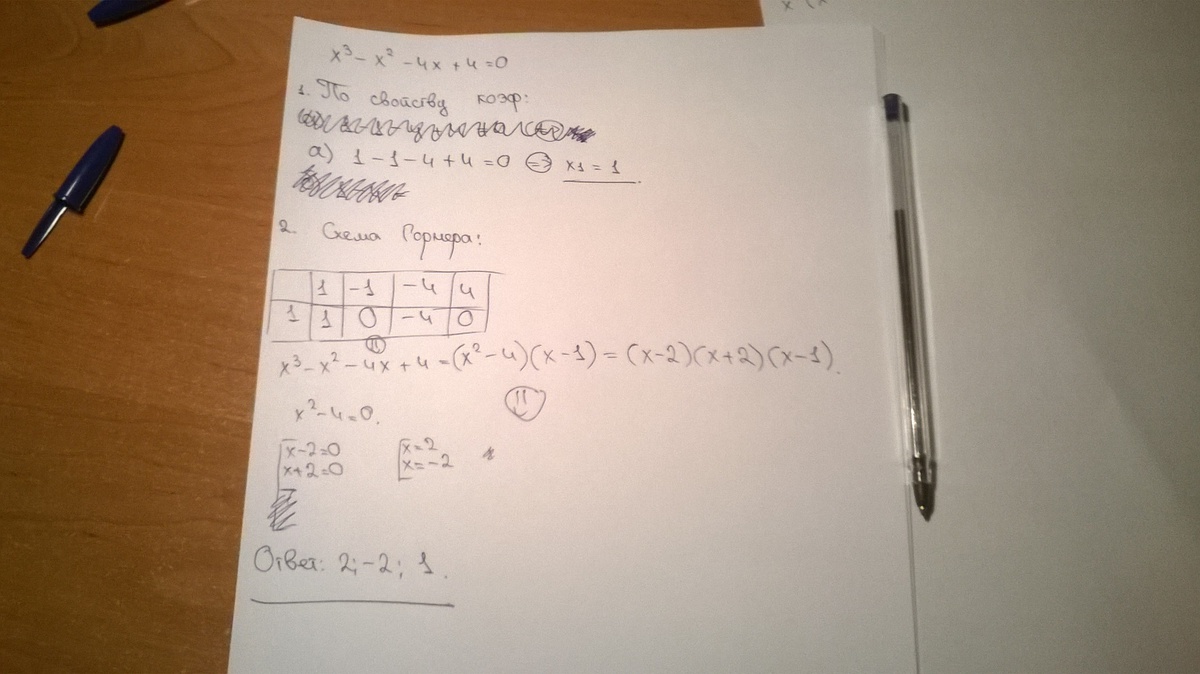 x³ - x² - 4x + 4 = 0
1. По свойству коэф:
а) 1 - 1 - 4 + 4 = 0 => x1 = 1
2. Схема Горнера:
1 -1 -4 4
1 1 0 -4 0
x³ - x² - 4x + 4 = (x² - 4)(x - 1) = (x - 2)(x + 2)(x - 1).
x² - 4 = 0.
[x - 2 = 0 [x = 2
[x + 2 = 0 [x = -2
Ответ: 2; -2; 1.